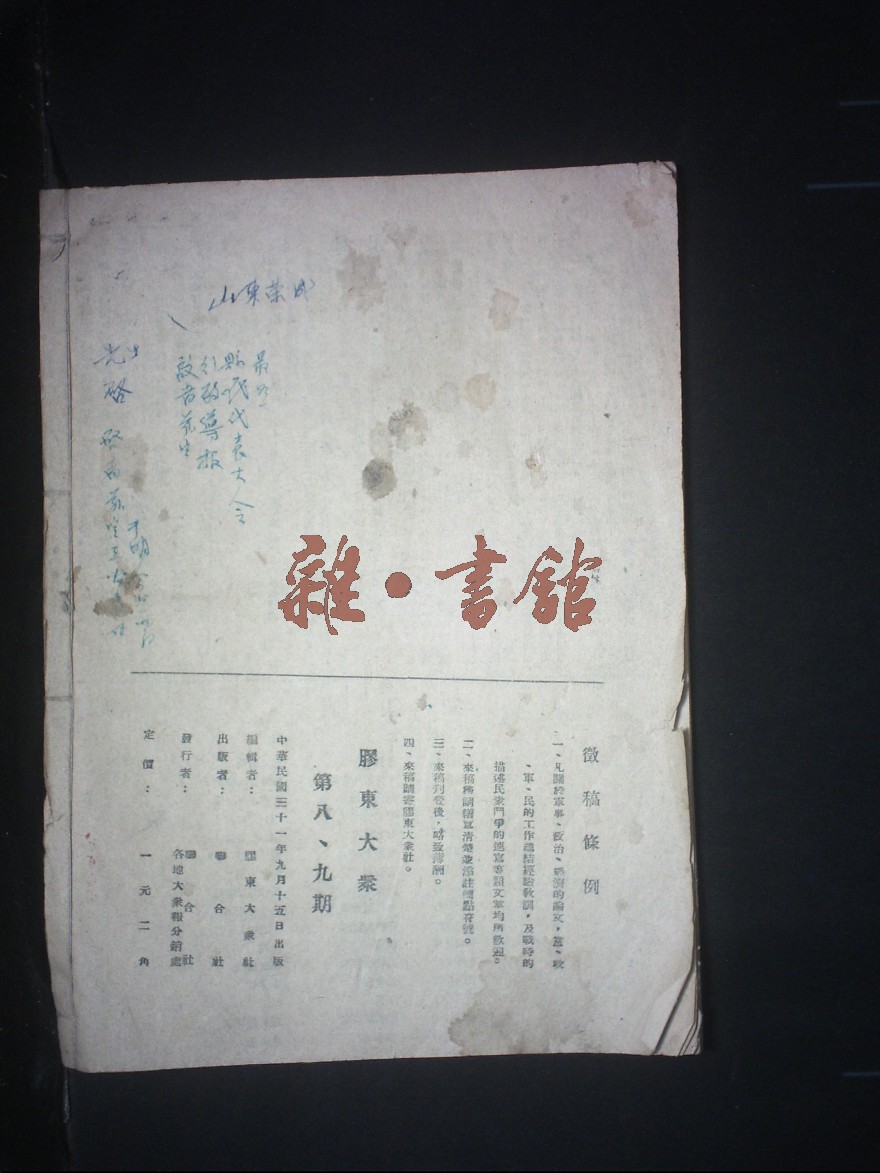 山東荣成
縣民代表大会
雜·書館
徵稿條例
一、凡關於軍事、政治、經濟的論文，黨、政
、軍、民的工作總結經驗教訓，及戰時的
描述民衆鬥爭的速寫等類文章均所歡迎。
二、來稿務請繕寫清楚並添註標點符號。
三、來稿刊登後，略致薄酬。
四、來稿請寄膠東大衆社。
膠東大衆
第八、九期
中華民國三十一年九月十五日出版
編輯者：膠東大衆社
出版者：聯合社
發行者：聯合社
各地大衆報分銷處
定價：一元二角